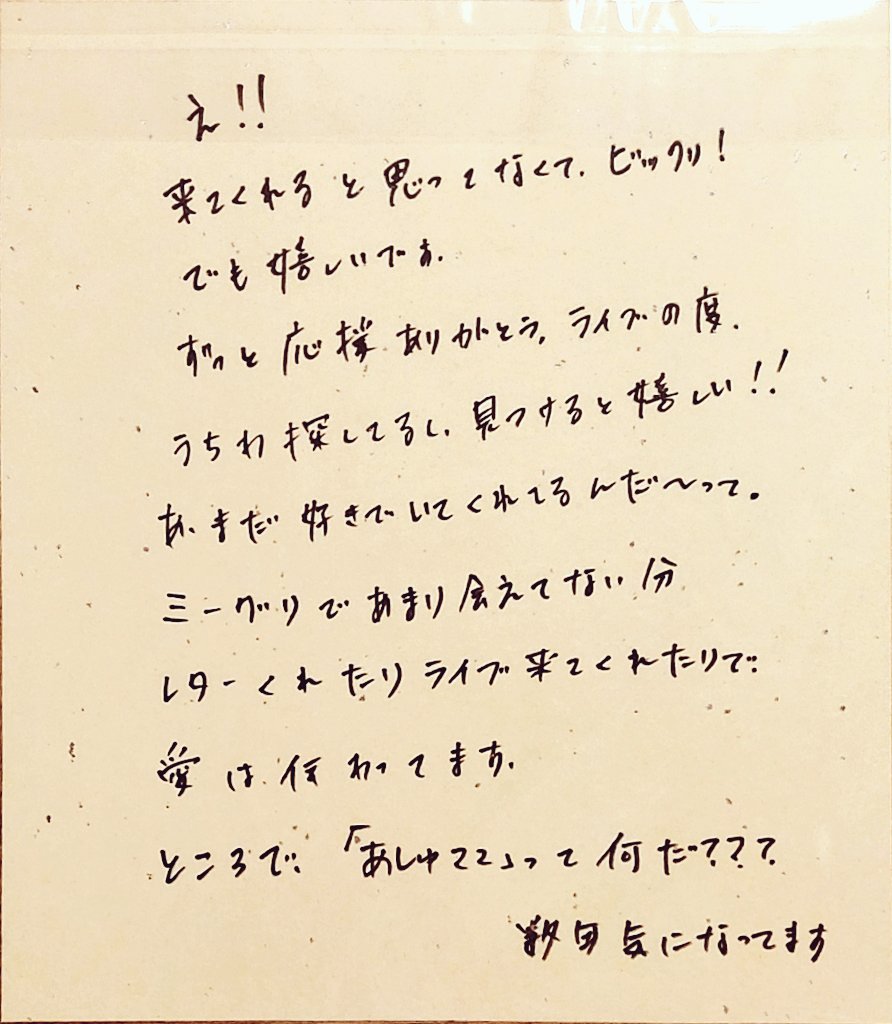 え!!
来てくれると思ってなくて、ビックリ!
でも嬉しいです。
ずっと応援ありがとう。ライブの度、
うちわ探してるし、見つけると嬉しい!!
あ、まだ好きでいてくれてるんだ〜って。
ミーグリであまり会えてない分
レターくれたりライブ来てくれたりで、
愛は伝わってます。
ところで、「あしゅ」って何だ???
気になってます